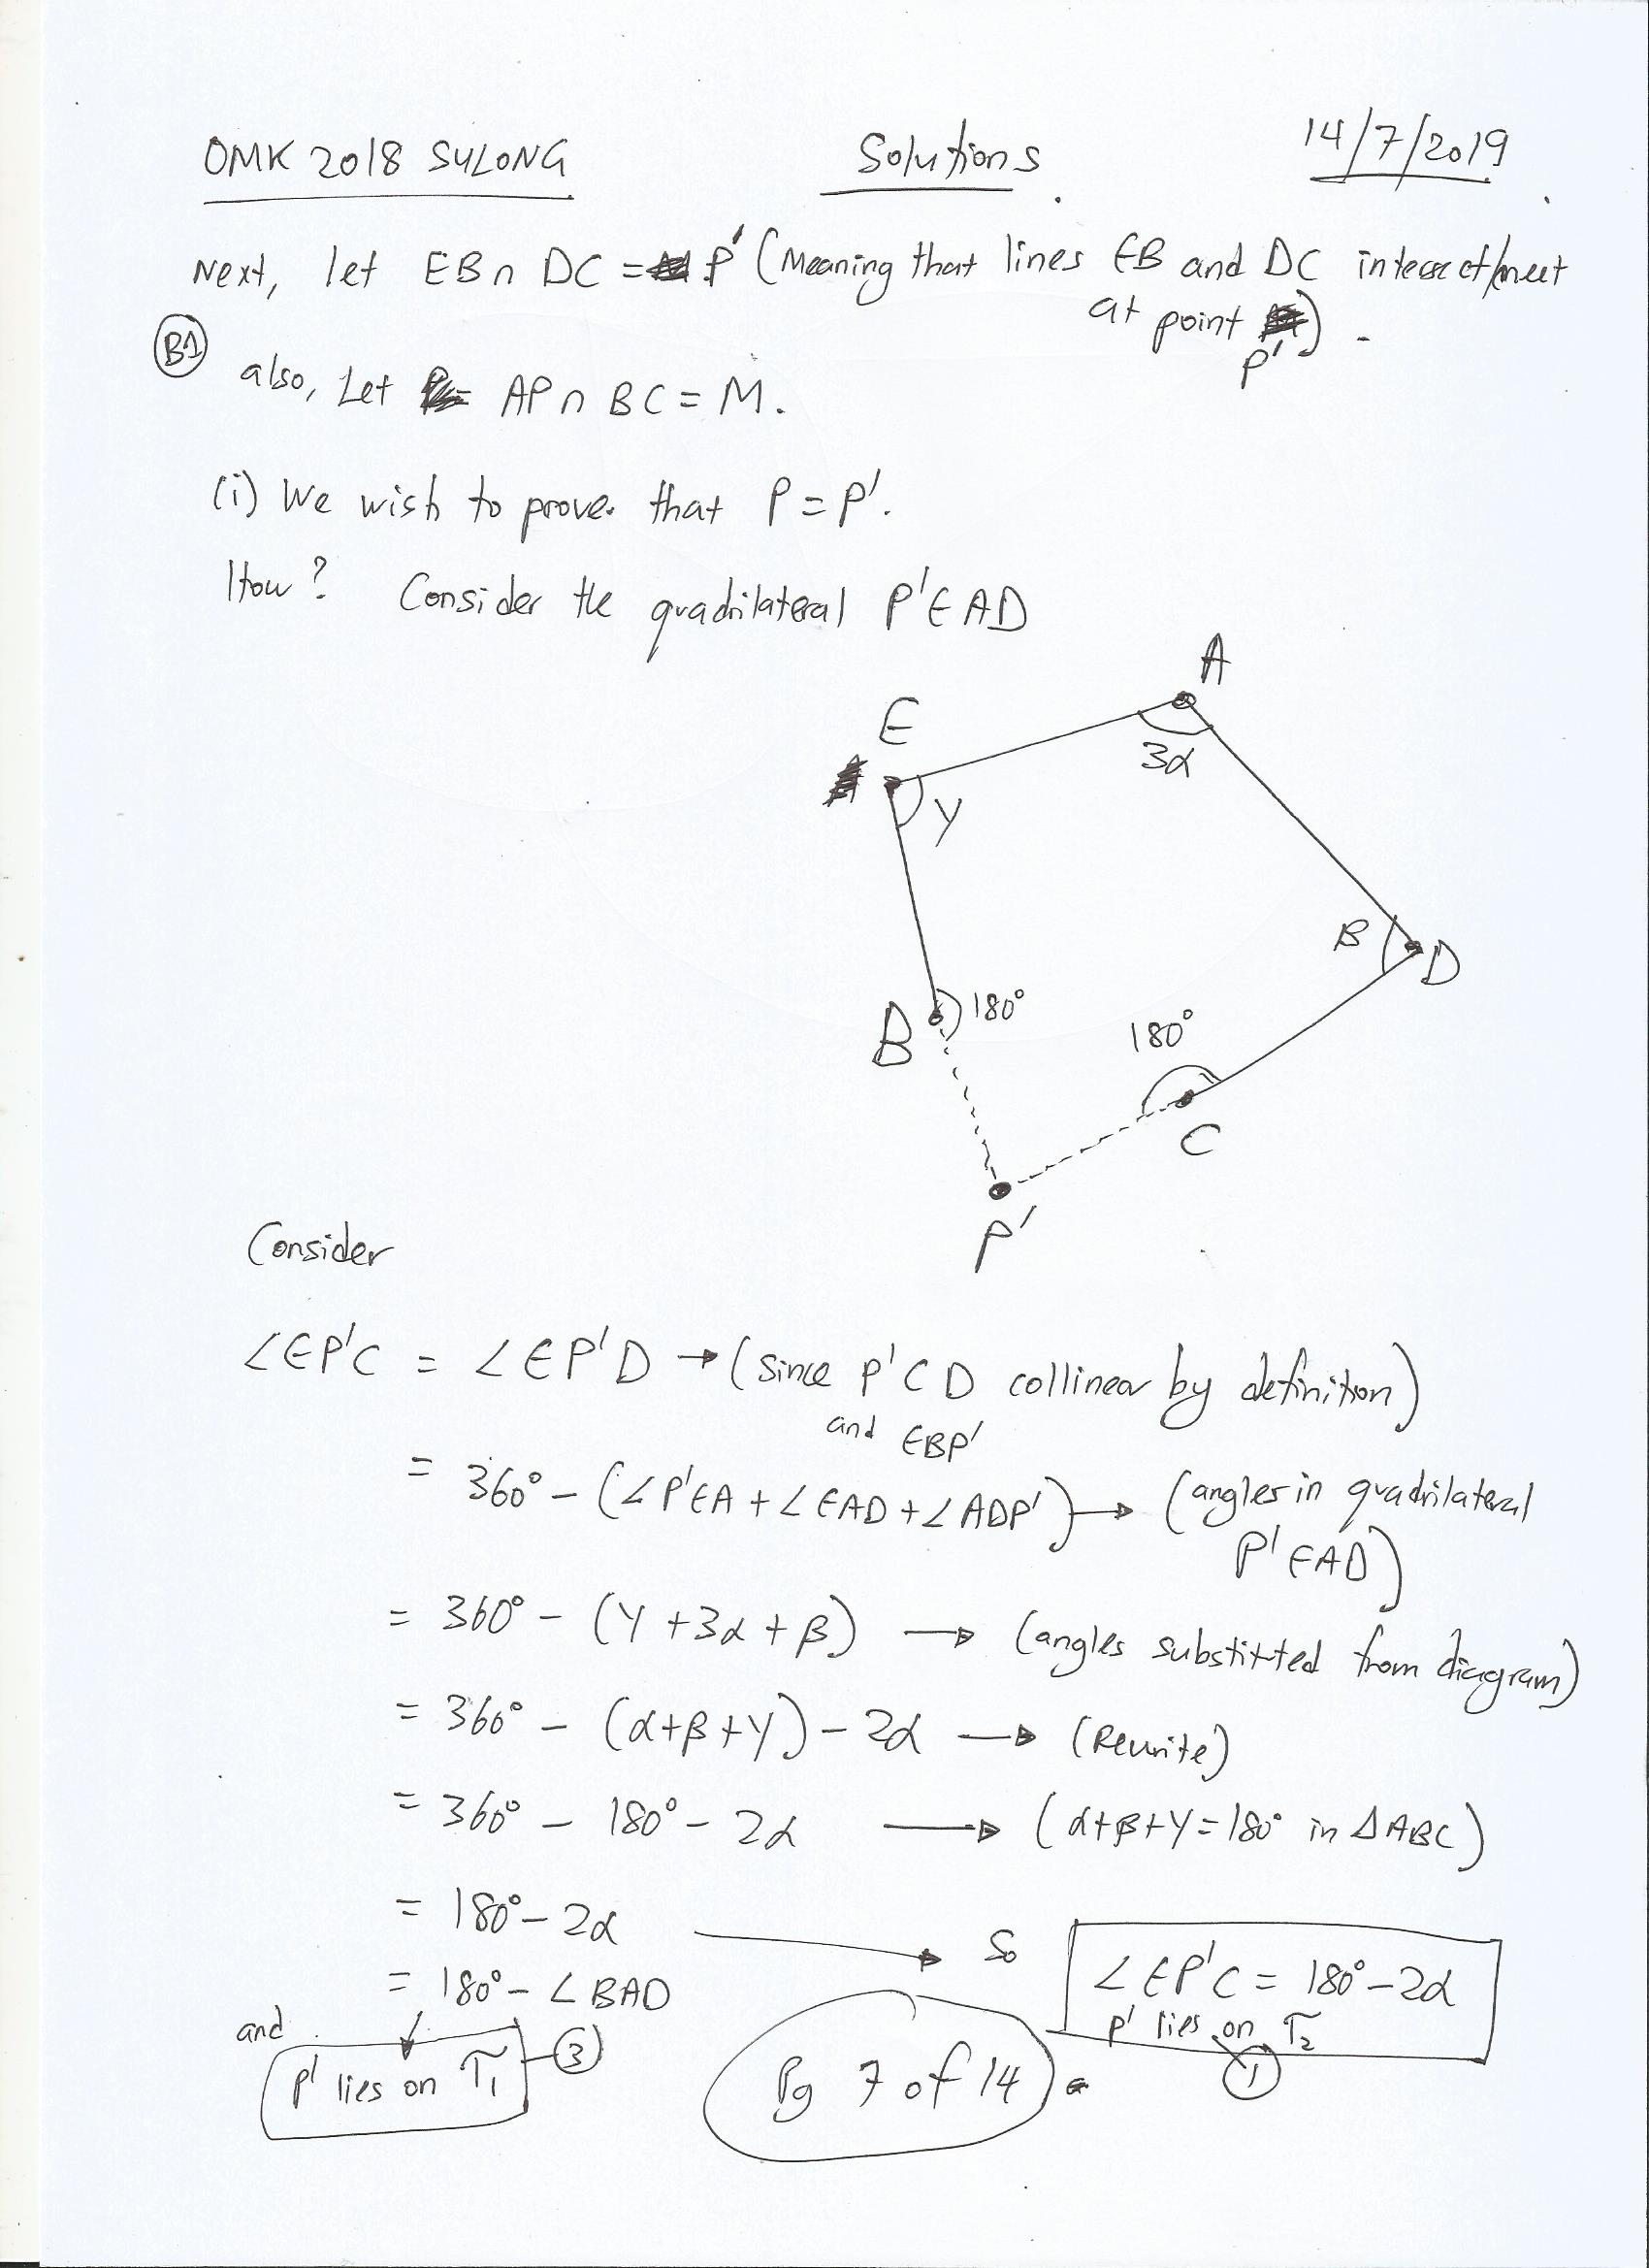 OMK 2018 SULONG Solutions 14/7/2019
Next, let EB ∩ DC = P' (Meaning that lines EB and DC intersect/meet
at point P').
B1
also, Let AP ∩ BC = M.
(i) We wish to prove that P = P'.
How? Consider the quadrilateral P'EAD
A
E
3α
γ
β
D
B
180°
180°
C
P'
Consider
∠EP'C = ∠EP'D → (since P'CD collinear by definition)
and EBP'
= 360° - (∠P'EA + ∠EAD + ∠ADP') → (angles in quadrilateral
P'EAD)
= 360° - (γ + 3α + β) → (angles substitted from diagram)
= 360° - (α+β+γ) - 2α → (Rewrite)
= 360° - 180° - 2α → (α+β+γ = 180° in ΔABC)
= 180° - 2α → So ∠EP'C = 180° - 2α
= 180° - ∠BAD P' lies on T₂ 1
and
P' lies on T₁ 3
Pg 7 of 14